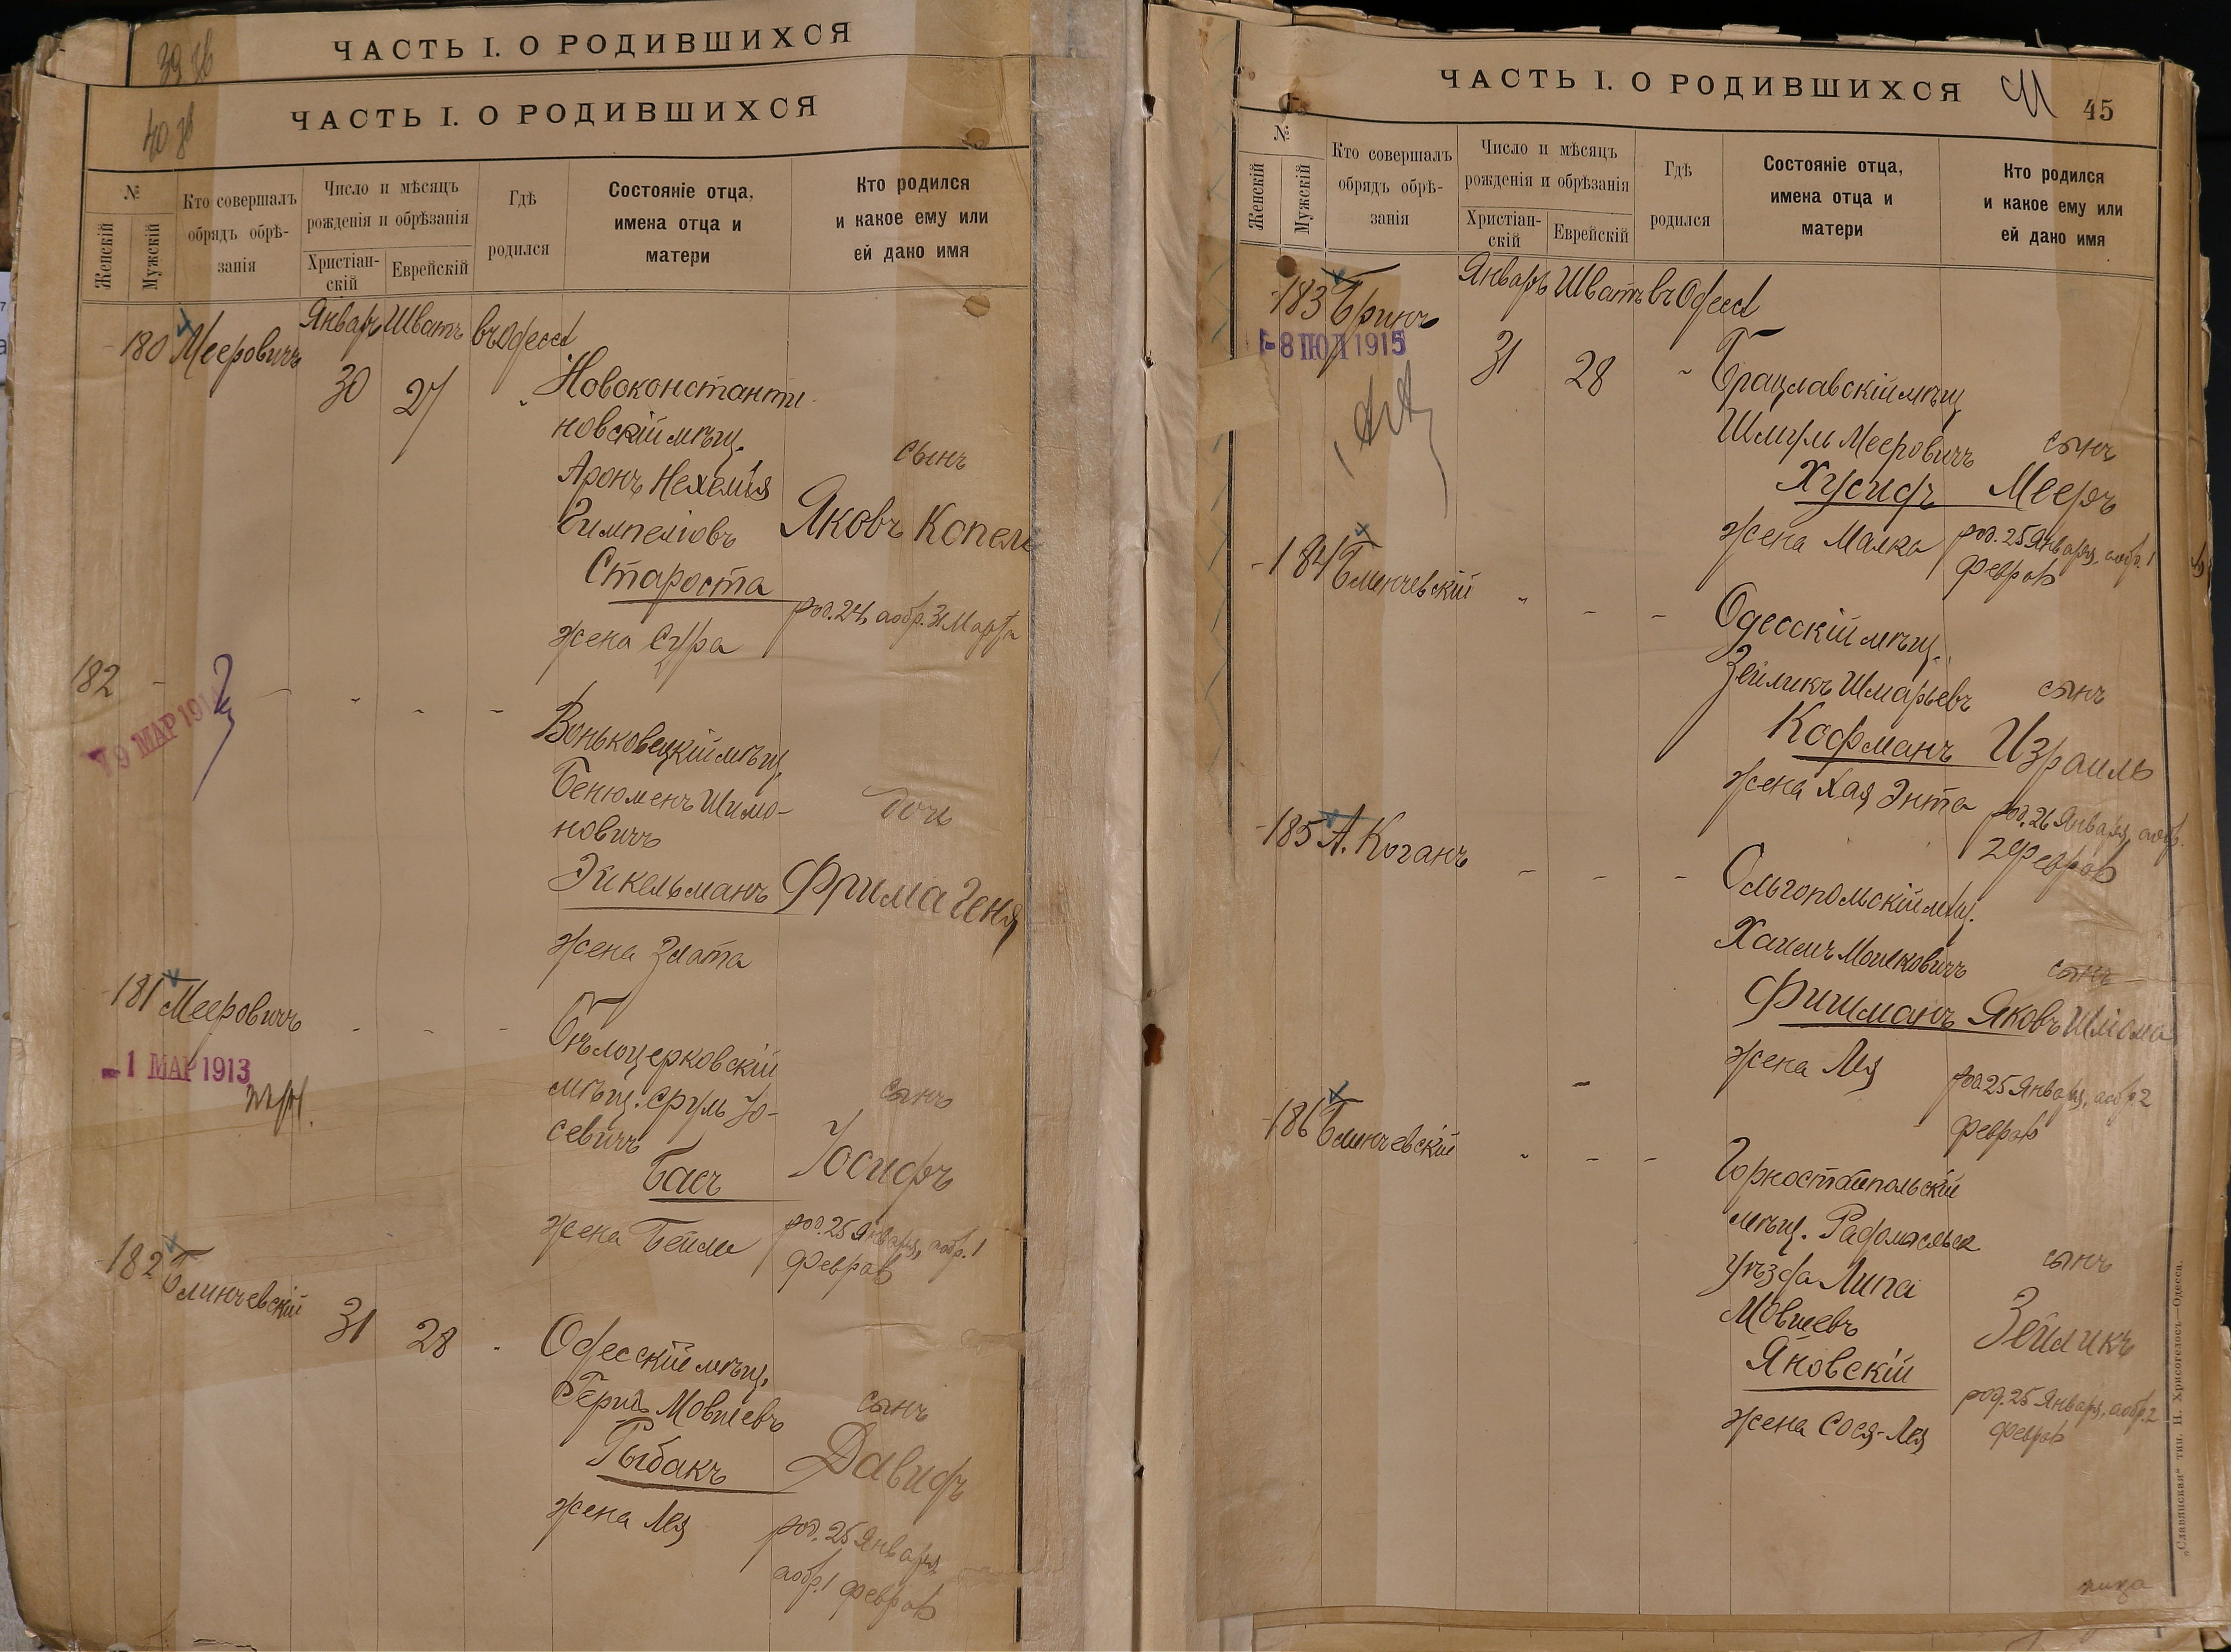 39 об
ЧАСТЬ I. О РОДИВШИХСЯ
40 об
ЧАСТЬ I. О РОДИВШИХСЯ
№
Женскій
Мужскій
Кто совершалъ
обрядъ обрѣ-
занія
Число и мѣсяцъ
рожденія и обрѣзанія
Христіан-
скій
Еврейскій
Гдѣ
родился
Состояніе отца,
имена отца и
матери
Кто родился
и какое ему или
ей дано имя
Январь Шватъ въ Одессѣ
180 Мееровичъ
30 27
Новоконстанти-
новскій мѣщ.
Аронъ Нехемія
Гимпеліовъ
Староста
жена Сура
сынъ
Яковъ Копель
род. 24, а обр. 31 Марта
182
19 МАР 191
Воньковецкій мѣщ.
Бенюменъ Шимо-
новичъ
Эйкельманъ
жена Злата
дочь
Фрима Геня
181 Мееровичъ
-1 МАР 1913
Бѣлоцерковскій
мѣщ. Сруль Іо-
севичъ
Басъ
жена Бейла
сынъ
Іосифъ
род. 25 Января, а обр. 1
Февраля
182 Блинчевскій
31 28
Одесскій мѣщ.
Гершъ Мовшевъ
Рыбакъ
жена Лея
сынъ
Давидъ
род. 25 Января,
а обр. 1 Февраля
ЧАСТЬ I. О РОДИВШИХСЯ
41
45
№
Женскій
Мужскій
Кто совершалъ
обрядъ обрѣ-
занія
Число и мѣсяцъ
рожденія и обрѣзанія
Христіан-
скій
Еврейскій
Гдѣ
родился
Состояніе отца,
имена отца и
матери
Кто родился
и какое ему или
ей дано имя
Январь Шватъ въ Одессѣ
183 Бринъ
-8 ІЮЛ 1915
31 28
Брацлавскій мѣщ.
Шмуль Мееровичъ
Хусидъ
жена Малка
сынъ
Мееръ
род. 25 Января, а обр. 1
Февраля
184 Блинчевскій
Одесскій мѣщ.
Зейликъ Шмарьевъ
Кофманъ
жена Хая Энта
сынъ
Израиль
род. 26 Января, а обр.
2 Февраля
185 А. Коганъ
Ольгопольскій мѣщ.
Хаимъ Мошковичъ
Фишманъ
жена Лея
сынъ
Яковъ Шлома
род. 25 Января, а обр. 2
Февраля
186 Блинчевскій
Горностайпольскій
мѣщ. Радомысльск
уѣзда Липа
Мовшевъ
Яновскій
жена Сося-Лея
сынъ
Зейликъ
род. 25 Января, а обр. 2
Февраля
„Славянская“ тип. Н. Хрисогелосъ—Одесса.